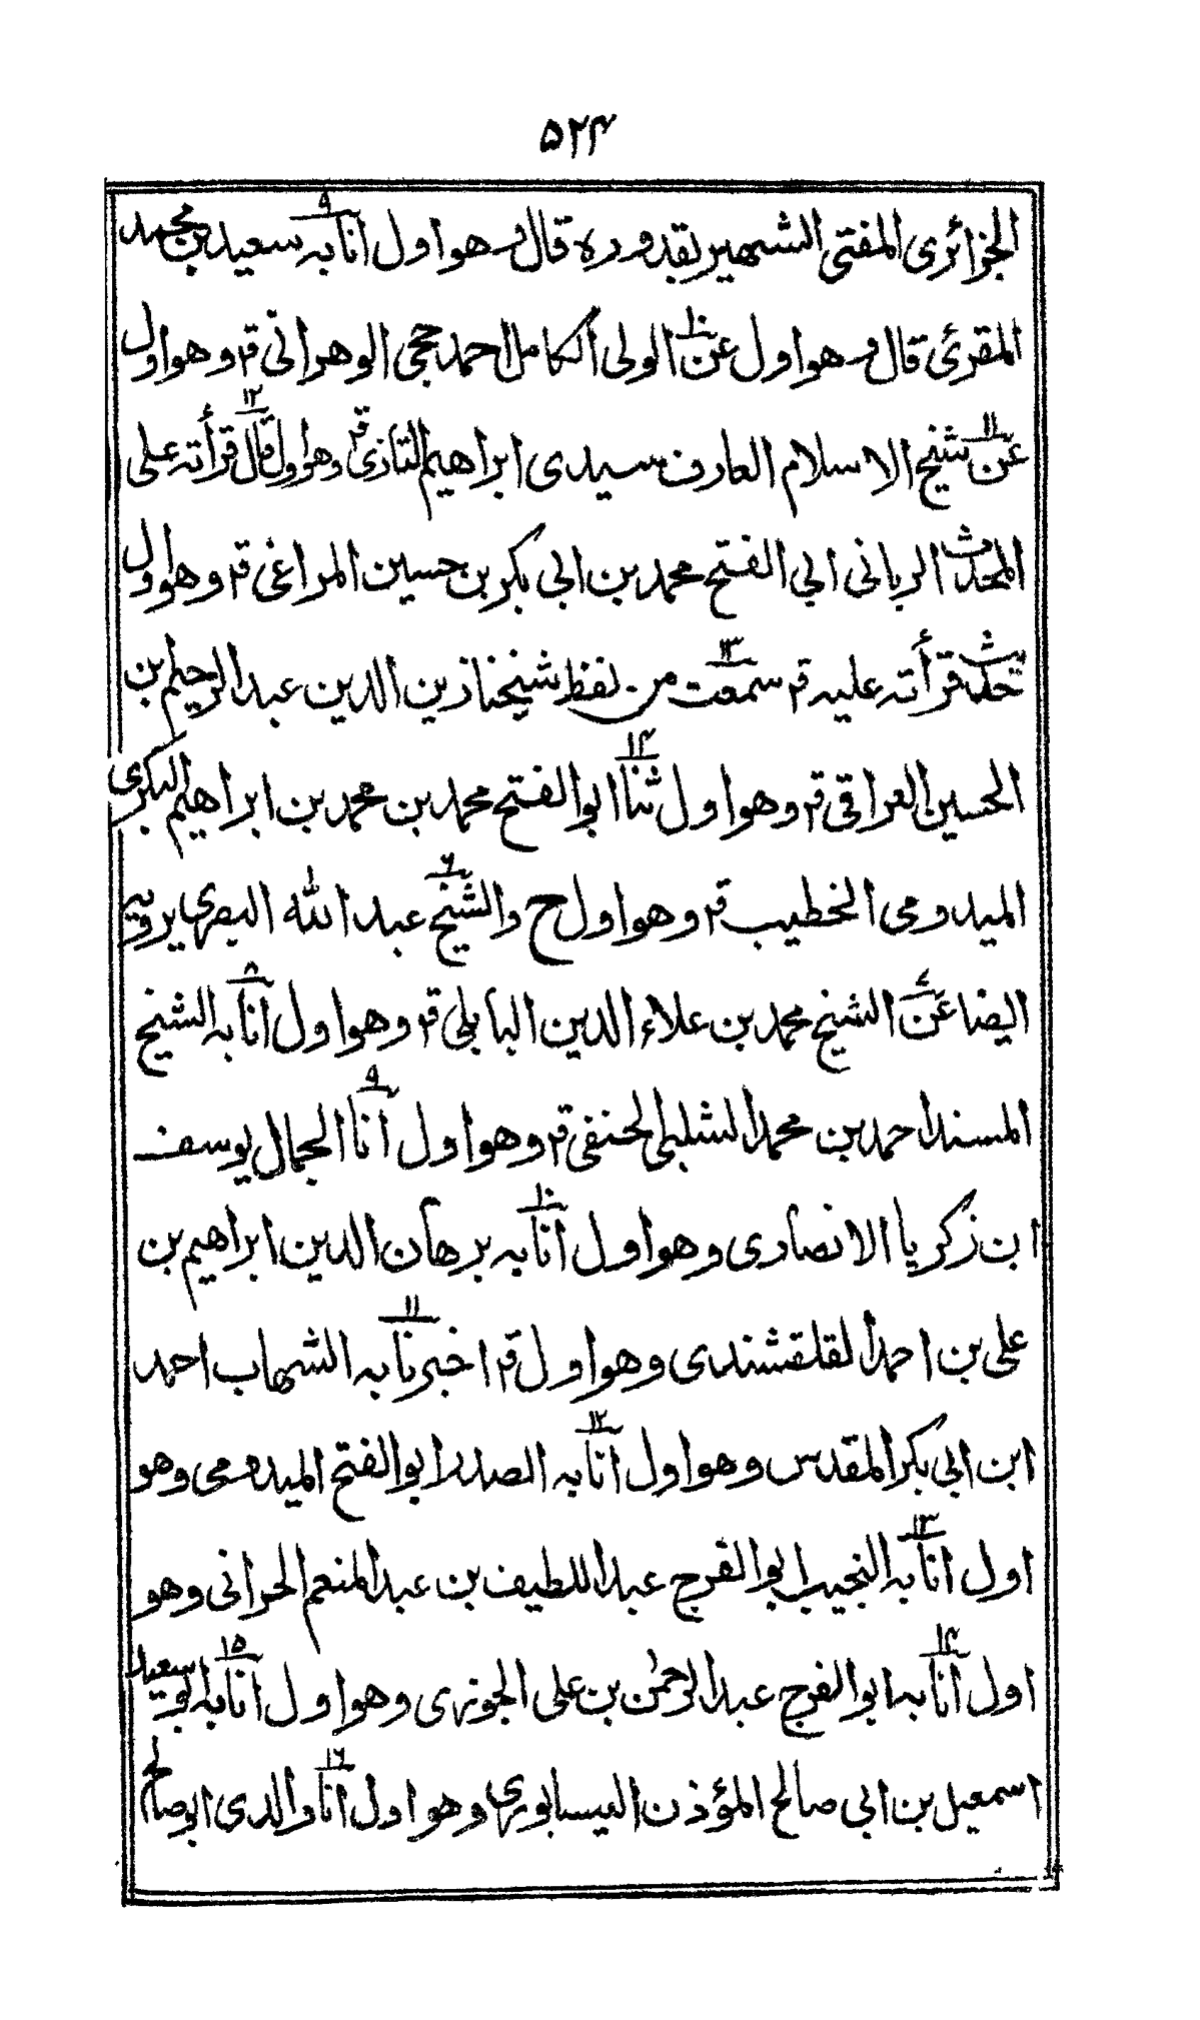 ۵۲۴
الجزائرى المفتى الشهير بقدوره قال وهو اول انا به ۹ سعيد بن محمد
المقرئ قال وهو اول عن ۱۰ الولى الكامل احمد حجى الوهرانى قر وهو اول
عن ۱۱ شيخ الاسلام العارف سيدى ابراهيم التازى قر وهو اول قال ۱۲ قرأته على
المحدث الربانى ابى الفتح محمد بن ابى بكر بن حسين المراغى قر وهو اول
حديث قرأته عليه قر سمعت ۱۳ من لفظ شيخنا زين الدين عبد الرحيم بن
الحسين العراقى قر وهو اول ثنا ۱۴ ابو الفتح محمد بن محمد بن ابراهيم البكرى
الميدومى الخطيب قر وهو اول ح والشيخ ۶ عبد الله البصرى يرويه
ايضا عن ۷ الشيخ محمد بن علاء الدين البابلى قر وهو اول انا به ۸ الشيخ
المسند احمد بن محمد الشلبى الحنفى قر وهو اول انا ۹ الجمال يوسف
ابن زكريا الانصارى وهو اول انا به ۱۰ برهان الدين ابراهيم بن
على بن احمد القلقشندى وهو اول قر اخبرنا به ۱۱ الشهاب احمد
ابن ابى بكر المقدس وهو اول انا به ۱۲ الصدر ابو الفتح الميدومى وهو
اول انا به ۱۳ النجيب ابو الفرج عبد اللطيف بن عبد المنعم الحرانى وهو
اول انا به ۱۴ ابو الفرج عبد الرحمن بن على الجوزى وهو اول انا به ۱۵ ابو سعيد
اسمعيل بن ابى صالح المؤذن النيسابورى وهو اول انا ۱۶ والدى ابو صالح